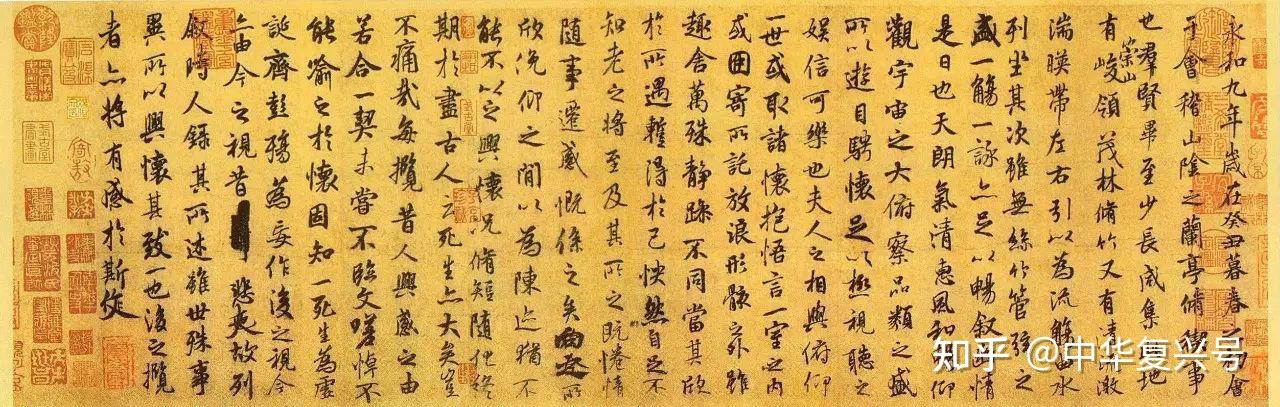 永和九年歲在癸丑暮春之初會
于會稽山陰之蘭亭脩稧事
也羣賢畢至少長咸集此地
有崇山峻領茂林脩竹又有清流激
湍暎帶左右引以為流觴曲水
列坐其次雖無絲竹管弦之
盛一觴一詠亦足以暢叙幽情
是日也天朗氣清惠風和暢仰
觀宇宙之大俯察品類之盛
所以遊目騁懷足以極視聽之
娛信可樂也夫人之相與俯仰
一世或取諸懷抱悟言一室之內
或因寄所託放浪形骸之外雖
趣舍萬殊靜躁不同當其欣
於所遇暫得於己怏然自足不
知老之將至及其所之既惓情
隨事遷感慨係之矣向之所
欣俛仰之間以為陳迹猶不
能不以之興懷況脩短隨化終
期於盡古人云死生亦大矣豈
不痛哉每攬昔人興感之由
若合一契未嘗不臨文嗟悼不
能喻之於懷固知一死生為虛
誕齊彭殤為妄作後之視今
亦由今之視昔悲夫故列
叙時人錄其所述雖世殊事
異所以興懷其致一也後之攬
者亦將有感於斯文
知乎 @中华复兴号